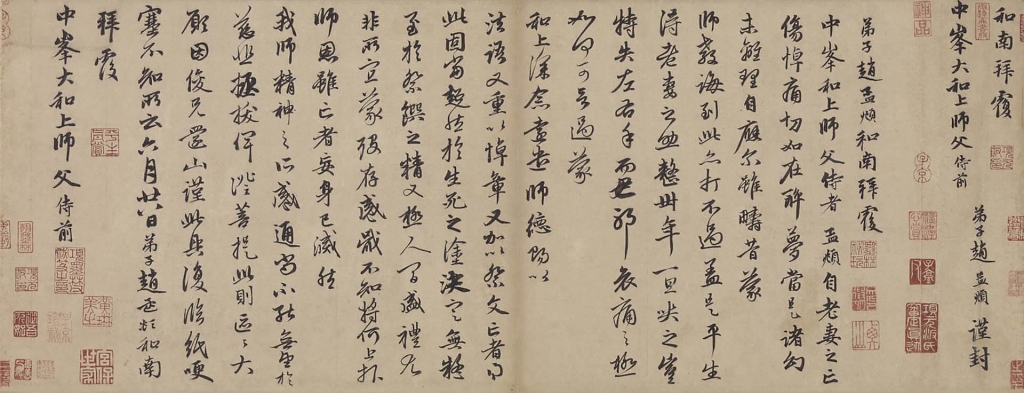 和南拜覆
中峯大和上師父侍前
弟子趙孟頫謹封
弟子趙孟頫和南拜覆
中峯和上師父侍者孟頫自老妻之亡
傷悼痛切如在醉夢當是諸幻
未離理自應尔雖疇昔蒙
師教誨到此亦打不過蓋是平生
得老妻之助整卅年一旦哭之豈
特失左右手而已耶哀痛之極
如何可言過蒙
和上深念遠遣師德賜以
法語又重以悼章又加以祭文亡者得
此固當超然於生死之塗決定無疑
至於祭饌之精又極人間盛禮尤
非所宜蒙歿存感戢不知將何上報
師恩雖亡者妄身已滅然
我師精神之所感通尚不能無望於
慈悲拯拔俾證菩提此則區區大
願因俊兄還山謹此具復臨紙哽
塞不知所云六月廿八日弟子趙孟頫和南
拜覆
中峯大和上師父侍前